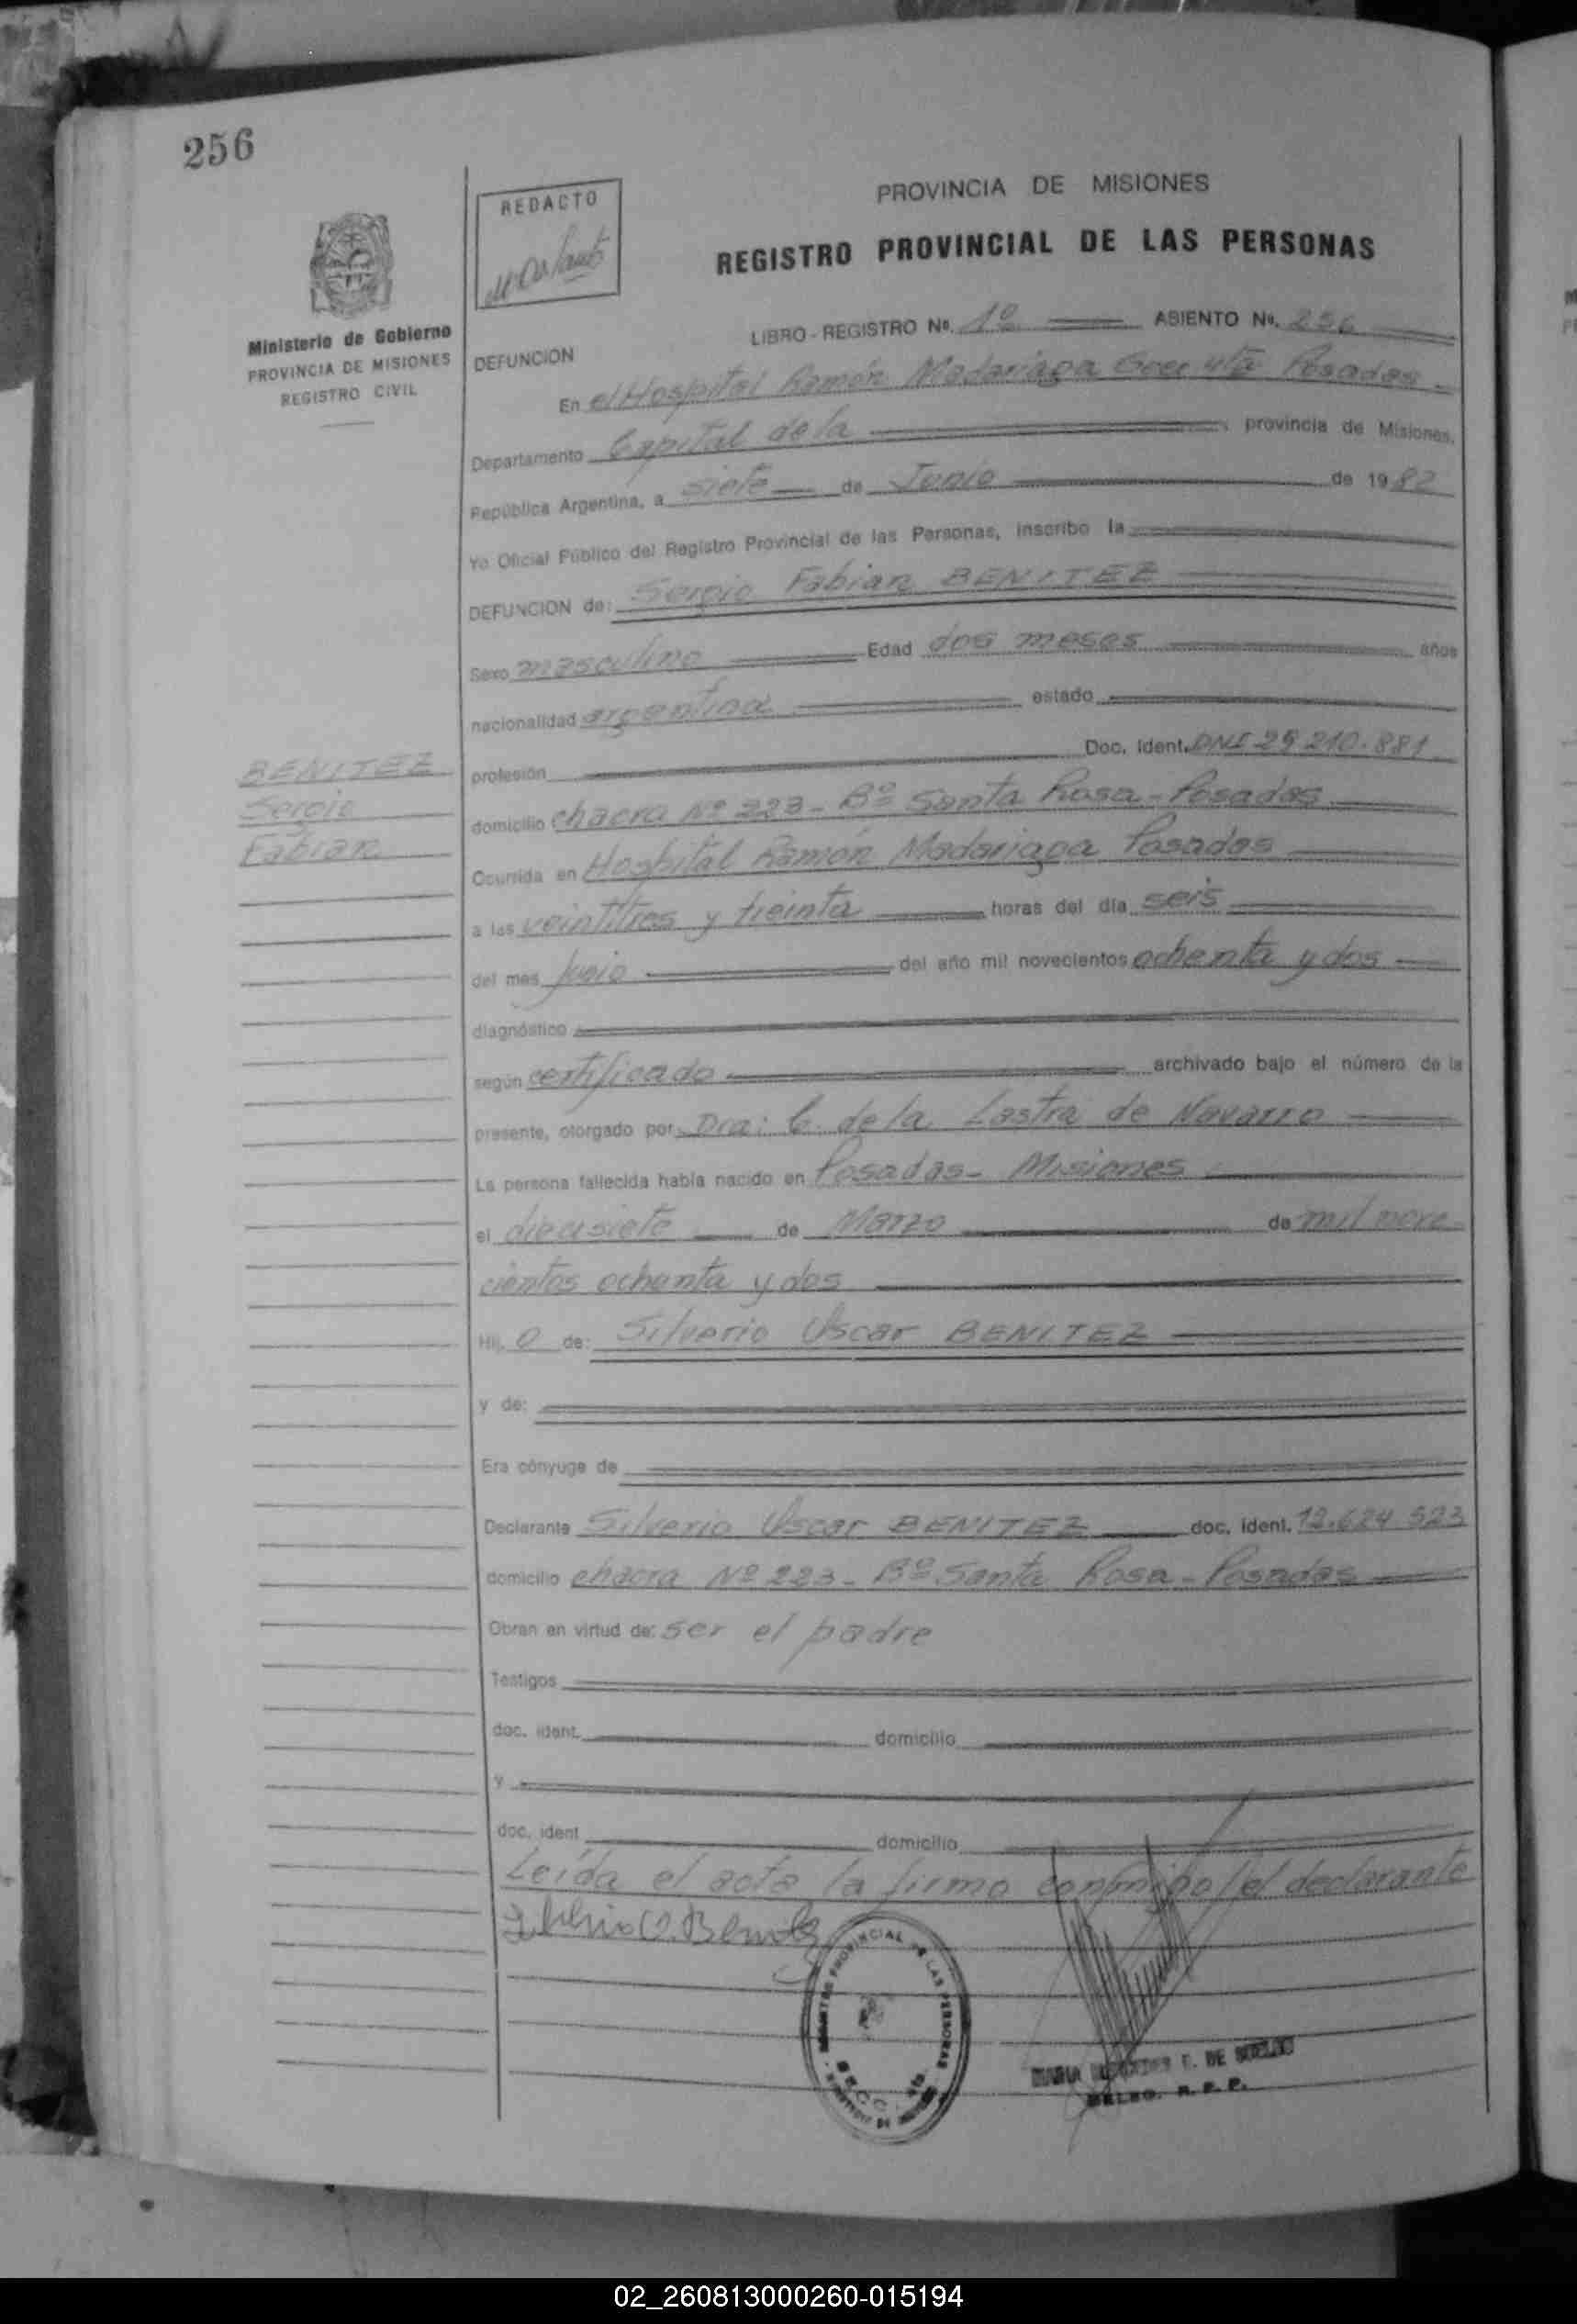 256
REDACTO
PROVINCIA DE MISIONES
REGISTRO PROVINCIAL DE LAS PERSONAS
Ministerio de Gobierno
PROVINCIA DE MISIONES
REGISTRO CIVIL
LIBRO - REGISTRO No. 1º ASIENTO No. 256
DEFUNCION
En el Hospital Ramón Madariaga Secc 4ta Posadas
Departamento Capital de la provincia de Misiones,
República Argentina, a siete de Junio de 1982
Yo Oficial Público del Registro Provincial de las Personas, inscribo la
DEFUNCION de: Sergio Fabian BENITEZ
Sexo masculino Edad dos meses años
nacionalidad argentina estado
profesión Doc. Ident. DNI 29.210.881
BENITEZ
Sergio
Fabian
domicilio chacra Nº 223 - Bº Santa Rosa - Posadas
Ocurrida en Hospital Ramón Madariaga Posadas
a las veintitres y treinta horas del día seis
del mes junio del año mil novecientos ochenta y dos
diagnóstico
según certificado archivado bajo el número de la
presente, otorgado por Dra: C. de la Lastra de Navarro
La persona fallecida había nacido en Posadas - Misiones
el diecisiete de Marzo de mil nove
cientos ochenta y dos
Hij o de: Silverio Oscar BENITEZ
y de:
Era cónyuge de
Declarante Silverio Oscar BENITEZ doc. ident. 12.624.523
domicilio chacra Nº 223 - Bº Santa Rosa - Posadas
Obran en virtud de: ser el padre
Testigos
doc. ident. domicilio
y
doc. ident domicilio
Leída el acta la firma conmigo el declarante
REGISTRO PROVINCIAL DE LAS PERSONAS
MARIA E. DE
DELEG. R. P. P.
02_260813000260-015194